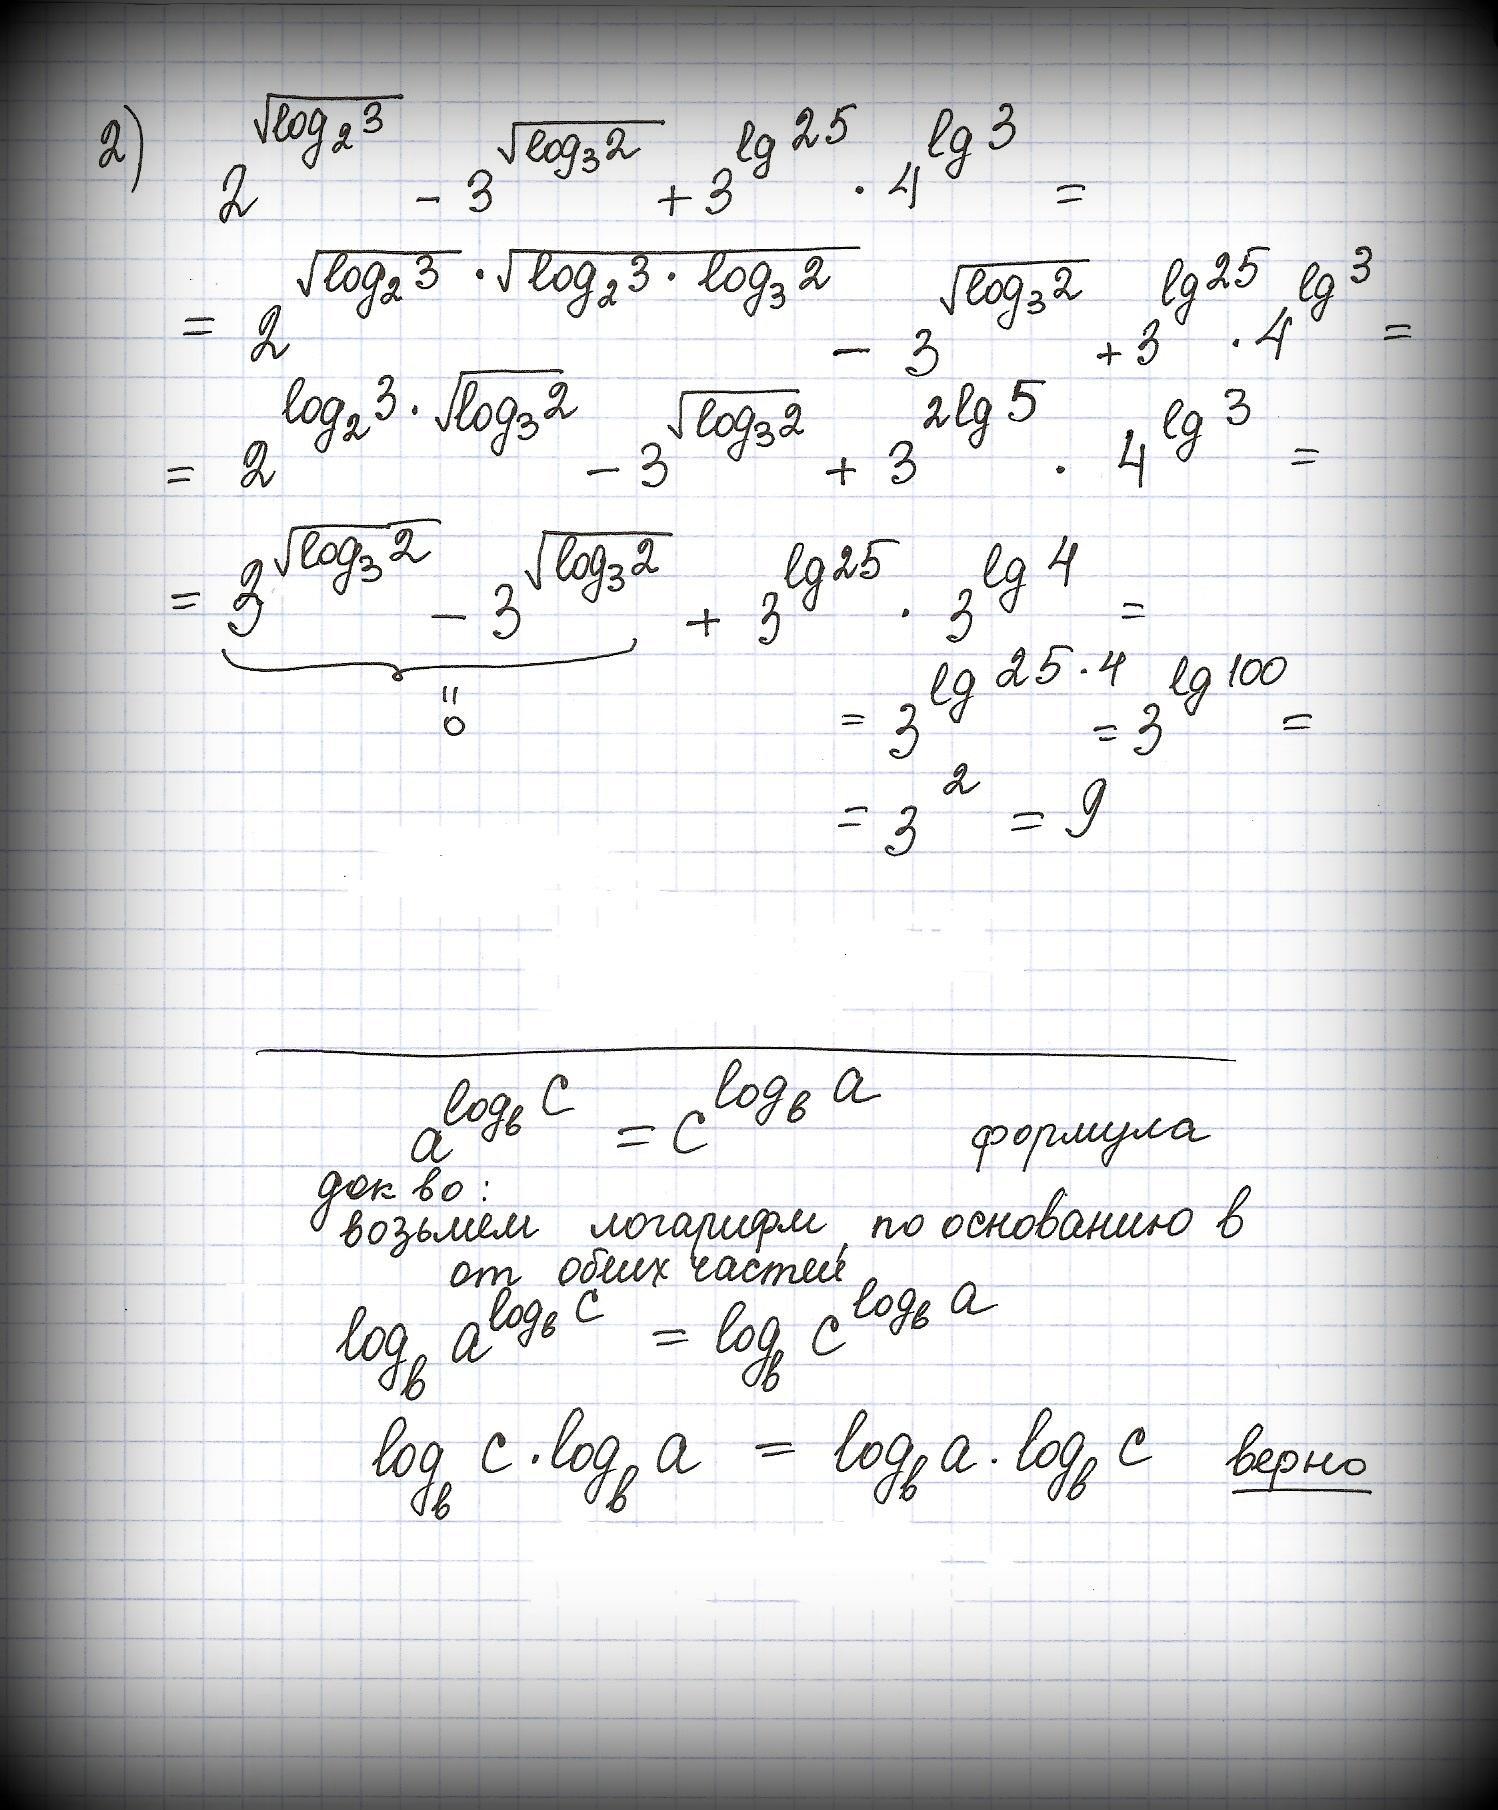 2) 2^{√log₂3} - 3^{√log₃2} + 3^{lg 25} · 4^{lg 3} =
= 2^{√log₂3 · √log₂3 · log₃2} - 3^{√log₃2} + 3^{lg 25} · 4^{lg 3} =
= 2^{log₂3 · √log₃2} - 3^{√log₃2} + 3^{2lg 5} · 4^{lg 3} =
= 3^{√log₃2} - 3^{√log₃2} + 3^{lg 25} · 3^{lg 4} =
"
0
= 3^{lg 25·4} = 3^{lg 100} =
= 3^2 = 9
a^{log_в c} = c^{log_в a} формула
док во:
возьмем логарифм по основанию в
от обеих частей
log_в a^{log_в c} = log_в c^{log_в a}
log_в c · log_в a = log_в a · log_в c верно